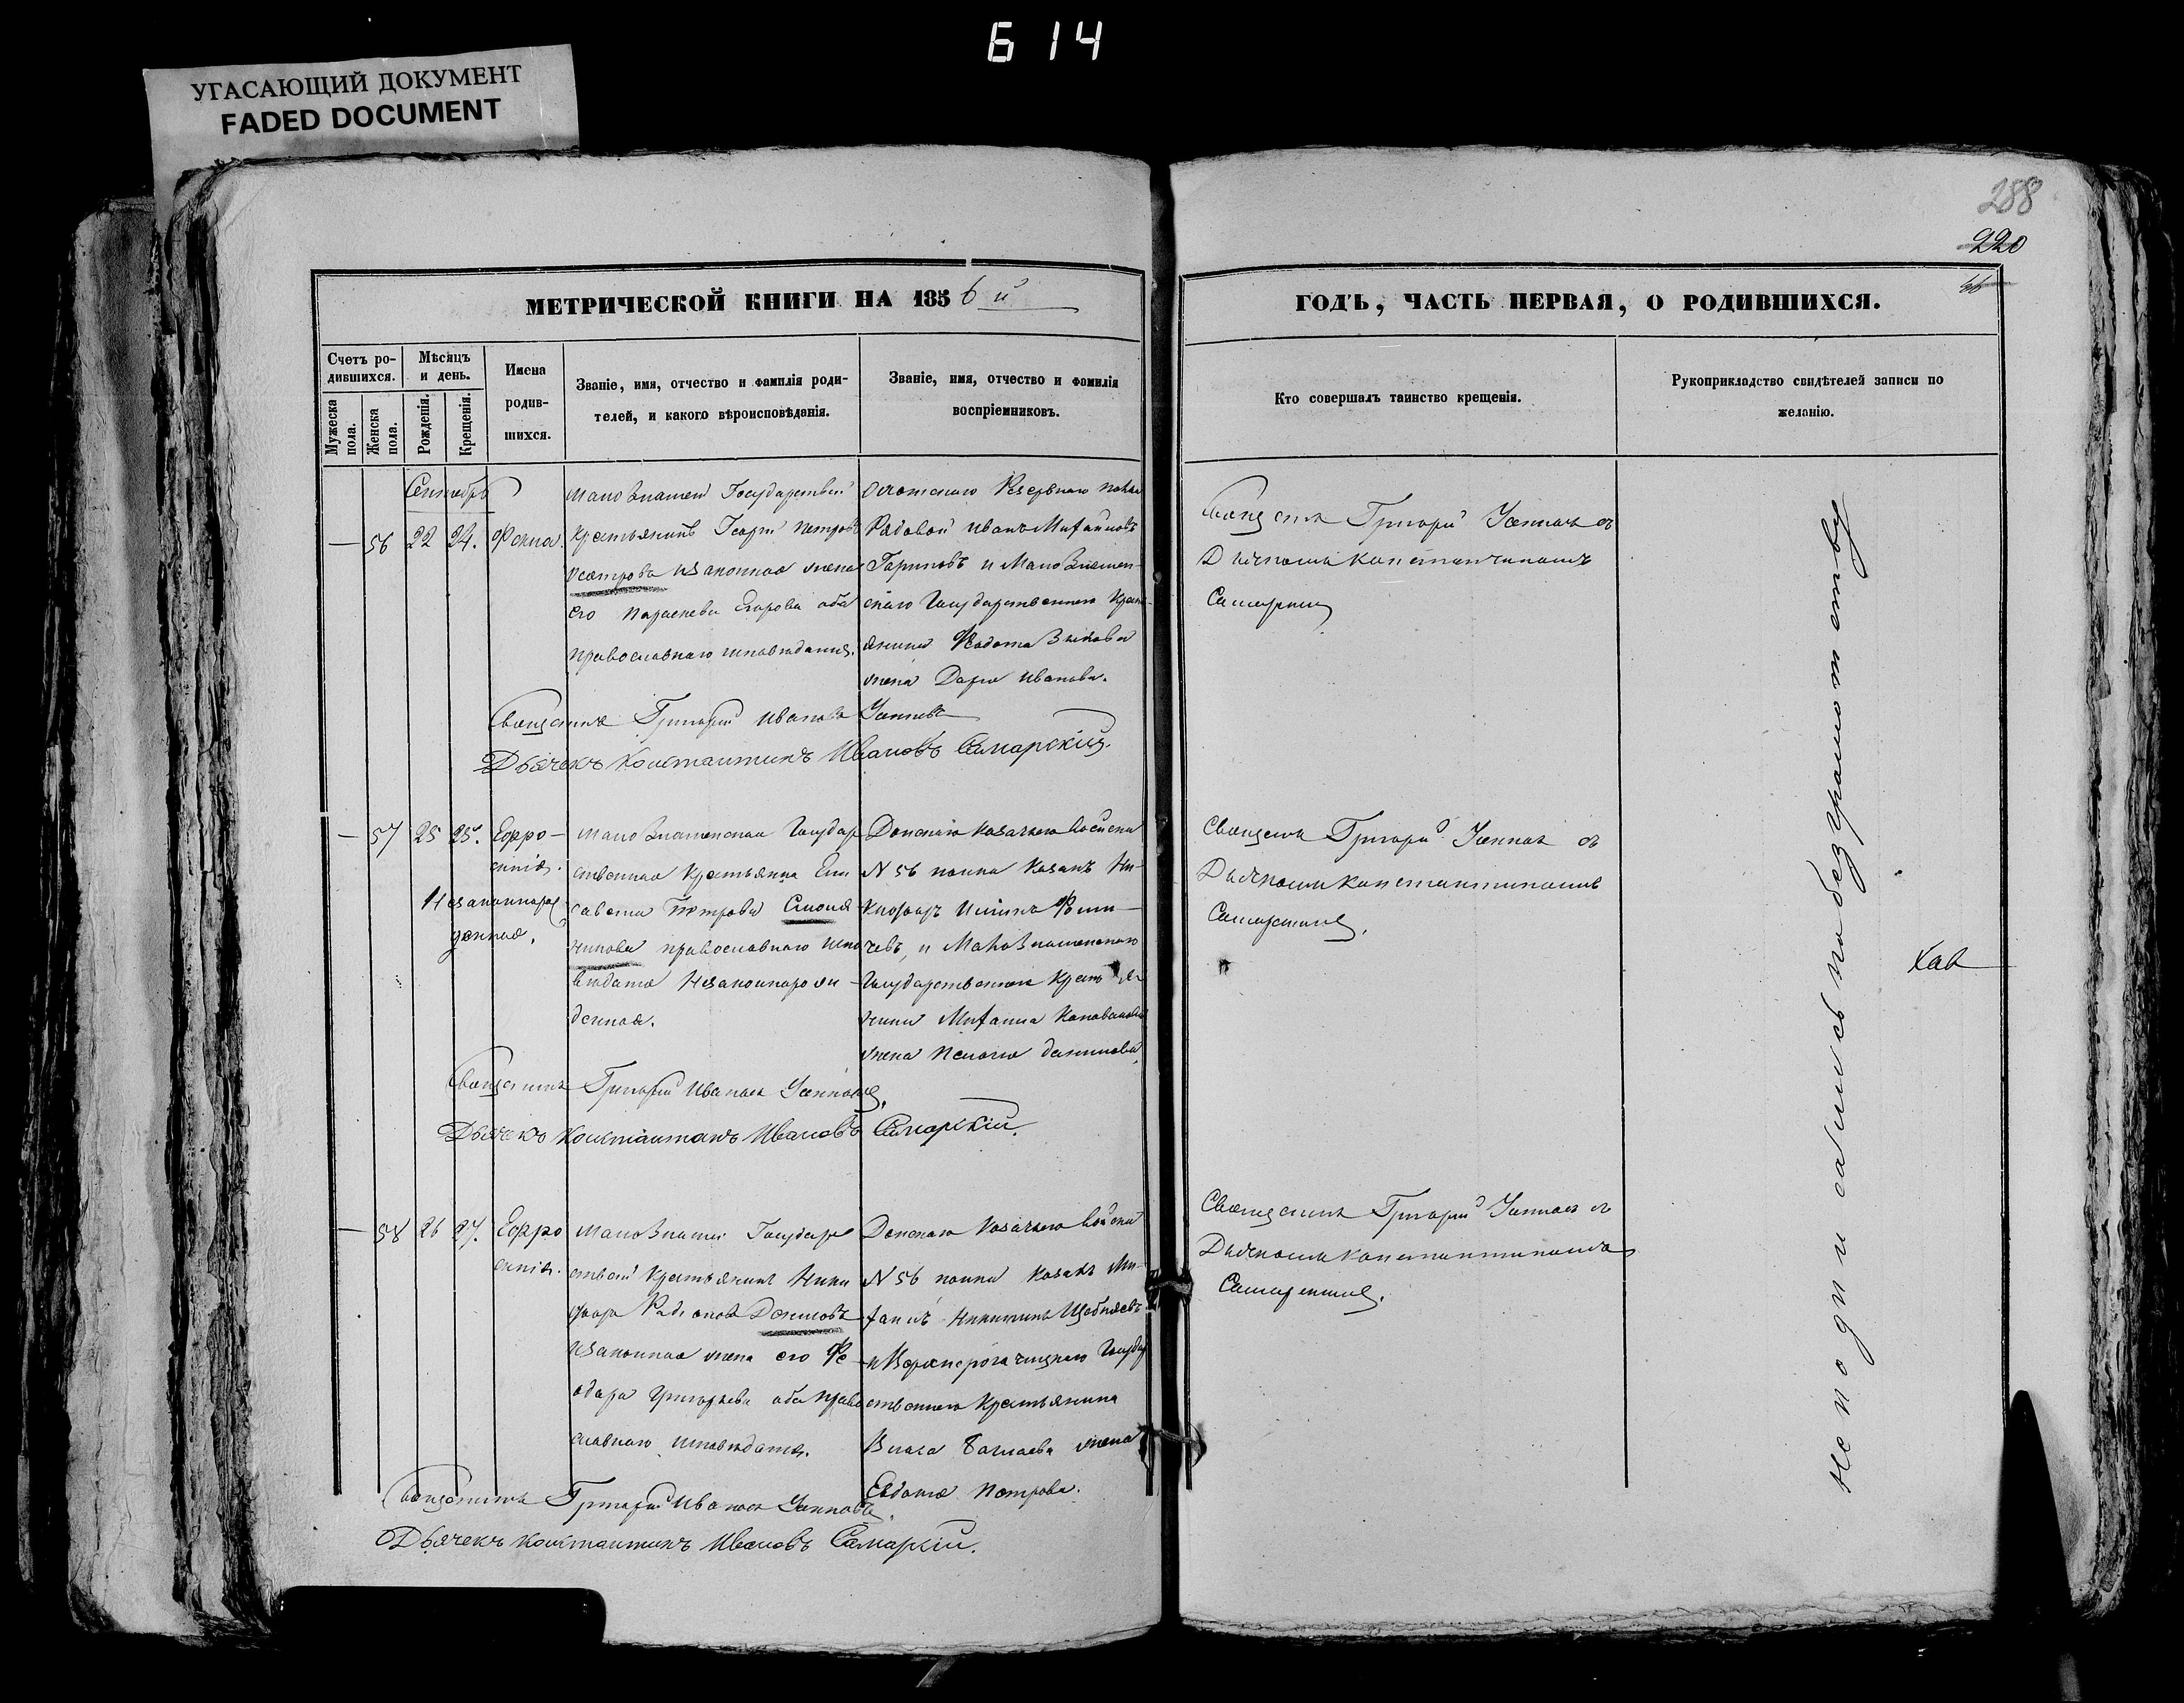 614
УГАСАЮЩИЙ ДОКУМЕНТ
FADED DOCUMENT
288
220
МЕТРИЧЕСКОЙ КНИГИ НА 1856 й
ГОДЪ, ЧАСТЬ ПЕРВАЯ, О РОДИВШИХСЯ.
Счетъ ро-
дившихся.
Мужеска пола.
Женска пола.
Мѣсяцъ
и день.
Рожденія.
Крещенія.
Имена
родив-
шихся.
Званіе, имя, отчество и фамилія роди-
телей, и какого вѣроисповѣданія.
Званіе, имя, отчество и фамилія
воспріемниковъ.
Кто совершалъ таинство крещенія.
Рукоприкладство свидѣтелей записи по
желанію.
Сентябрь
— 56 22 24. Фекла.
Малознаменс Государствен
Крестьянинъ Георгій Петровъ
изаконная жена
его Параскева Егорова оба
православнаго исповѣданія.
Резервнаго полка
Рядовой Иванъ Михайловъ
Гавриловъ и МалоЗнамен-
скаго Государственнаго Кресть-
янина Федота Зыкова
жена Дарья Иванова.
Священникъ Григорій съ
Дьячкомъ Константиномъ
Самарскимъ
Священникъ Григорій Ивановъ
Дьячекъ Константинъ Ивановъ Самарскій.
— 57 25 25. Евфро-
синія.
Незаконнорож
денная.
МалоЗнаменская Государ
ственная Крестьянка Ели
савета Петрова
православнаго испо
вѣданія Незаконнорож
денная.
Донскаго Казачьяго Войска
N 56 полка Казакъ Ни-
кифоръ
и МалоЗнаменскаго
Государственнаго Кресть
янина Михаила
жена Пелагія Данилова
Священникъ Григорій съ
Дьячкомъ Константиномъ
Самарскимъ.
Священникъ Григорій Ивановъ
Дьячекъ Константинъ Ивановъ Самарскій.
— 58 26 27. Евфро
синія.
МалоЗнамен Государ
ствен Крестьянинъ Ники
форъ Родіоновъ Денисовъ
изаконная жена его Фе
одора Григорьева оба право
славнаго исповѣданія.
Донскаго Казачьяго Войска
N 56 полка Казакъ Ми-
хаилъ Никитинъ
и Верхнерогачицкаго Государ
ственнаго Крестьянина
Власа жена
Евдокія Петрова.
Священникъ Григорій съ
Дьячкомъ Константиномъ
Самарскимъ.
Священникъ Григорій Ивановъ
Дьячекъ Константинъ Ивановъ Самарскій.
Неподписались по безграмотству